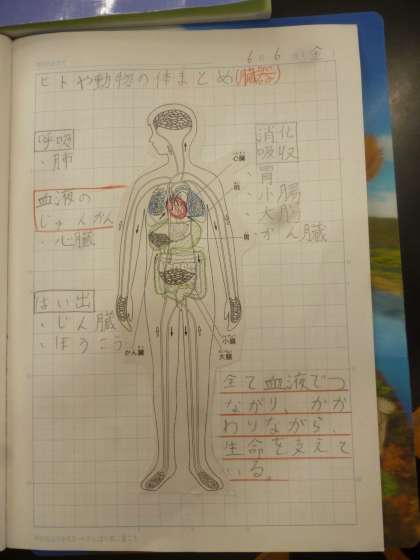 6月6日(金)
ヒトや動物の体まとめ(臓器)
呼吸
・肺
血液の
じゅんかん
・心臓
はい出
・じん臓
・ぼうこう
消化
吸収
・胃
・小腸
・大腸
・かん臓
心臓
肺
胃
小腸
大腸
かん臓
全て血液でつ
ながり、かか
わりながら、
生命を支えて
いる。